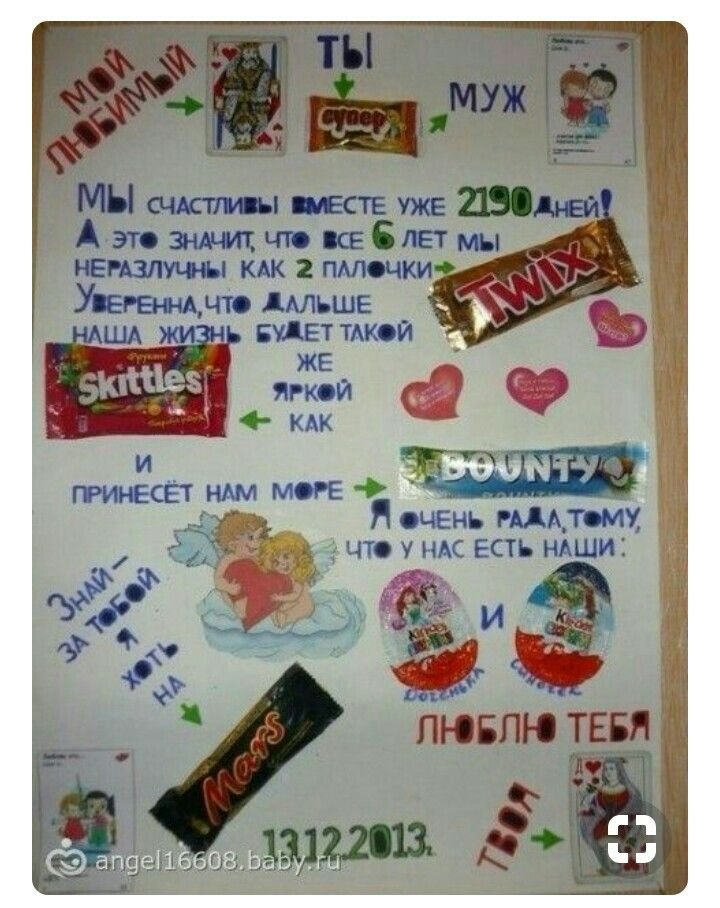 МОЙ
ЛЮБИМЫЙ
К
К
ТЫ
супер
МУЖ
Любовь это...
МЫ СЧАСТЛИВЫ ВМЕСТЕ УЖЕ 2190 ДНЕЙ!
А ЭТО ЗНАЧИТ, ЧТО ВСЕ 6 ЛЕТ МЫ
НЕРАЗЛУЧНЫ КАК 2 ПАЛОЧКИ
TWIX
УВЕРЕННА, ЧТО ДАЛЬШЕ
НАША ЖИЗНЬ БУДЕТ ТАКОЙ
ЖЕ
ЯРКОЙ
КАК
Фрукты
Skittles
И
ПРИНЕСЁТ НАМ МОРЕ
BOUNTY
Я ОЧЕНЬ РАДА, ТОМУ,
ЧТО У НАС ЕСТЬ НАШИ:
Kinder
СЮРПРИЗ
ДОЧЕНЬКА
И
Kinder
СЮРПРИЗ
СЫНОЧЕК
ЗНАЙ –
ЗА ТОБОЙ
Я
ХОТЬ
НА
Mars
ЛЮБЛЮ ТЕБЯ
Любовь это...
13.12.2013г.
ТВОЯ
Д
angel16608.baby.ru